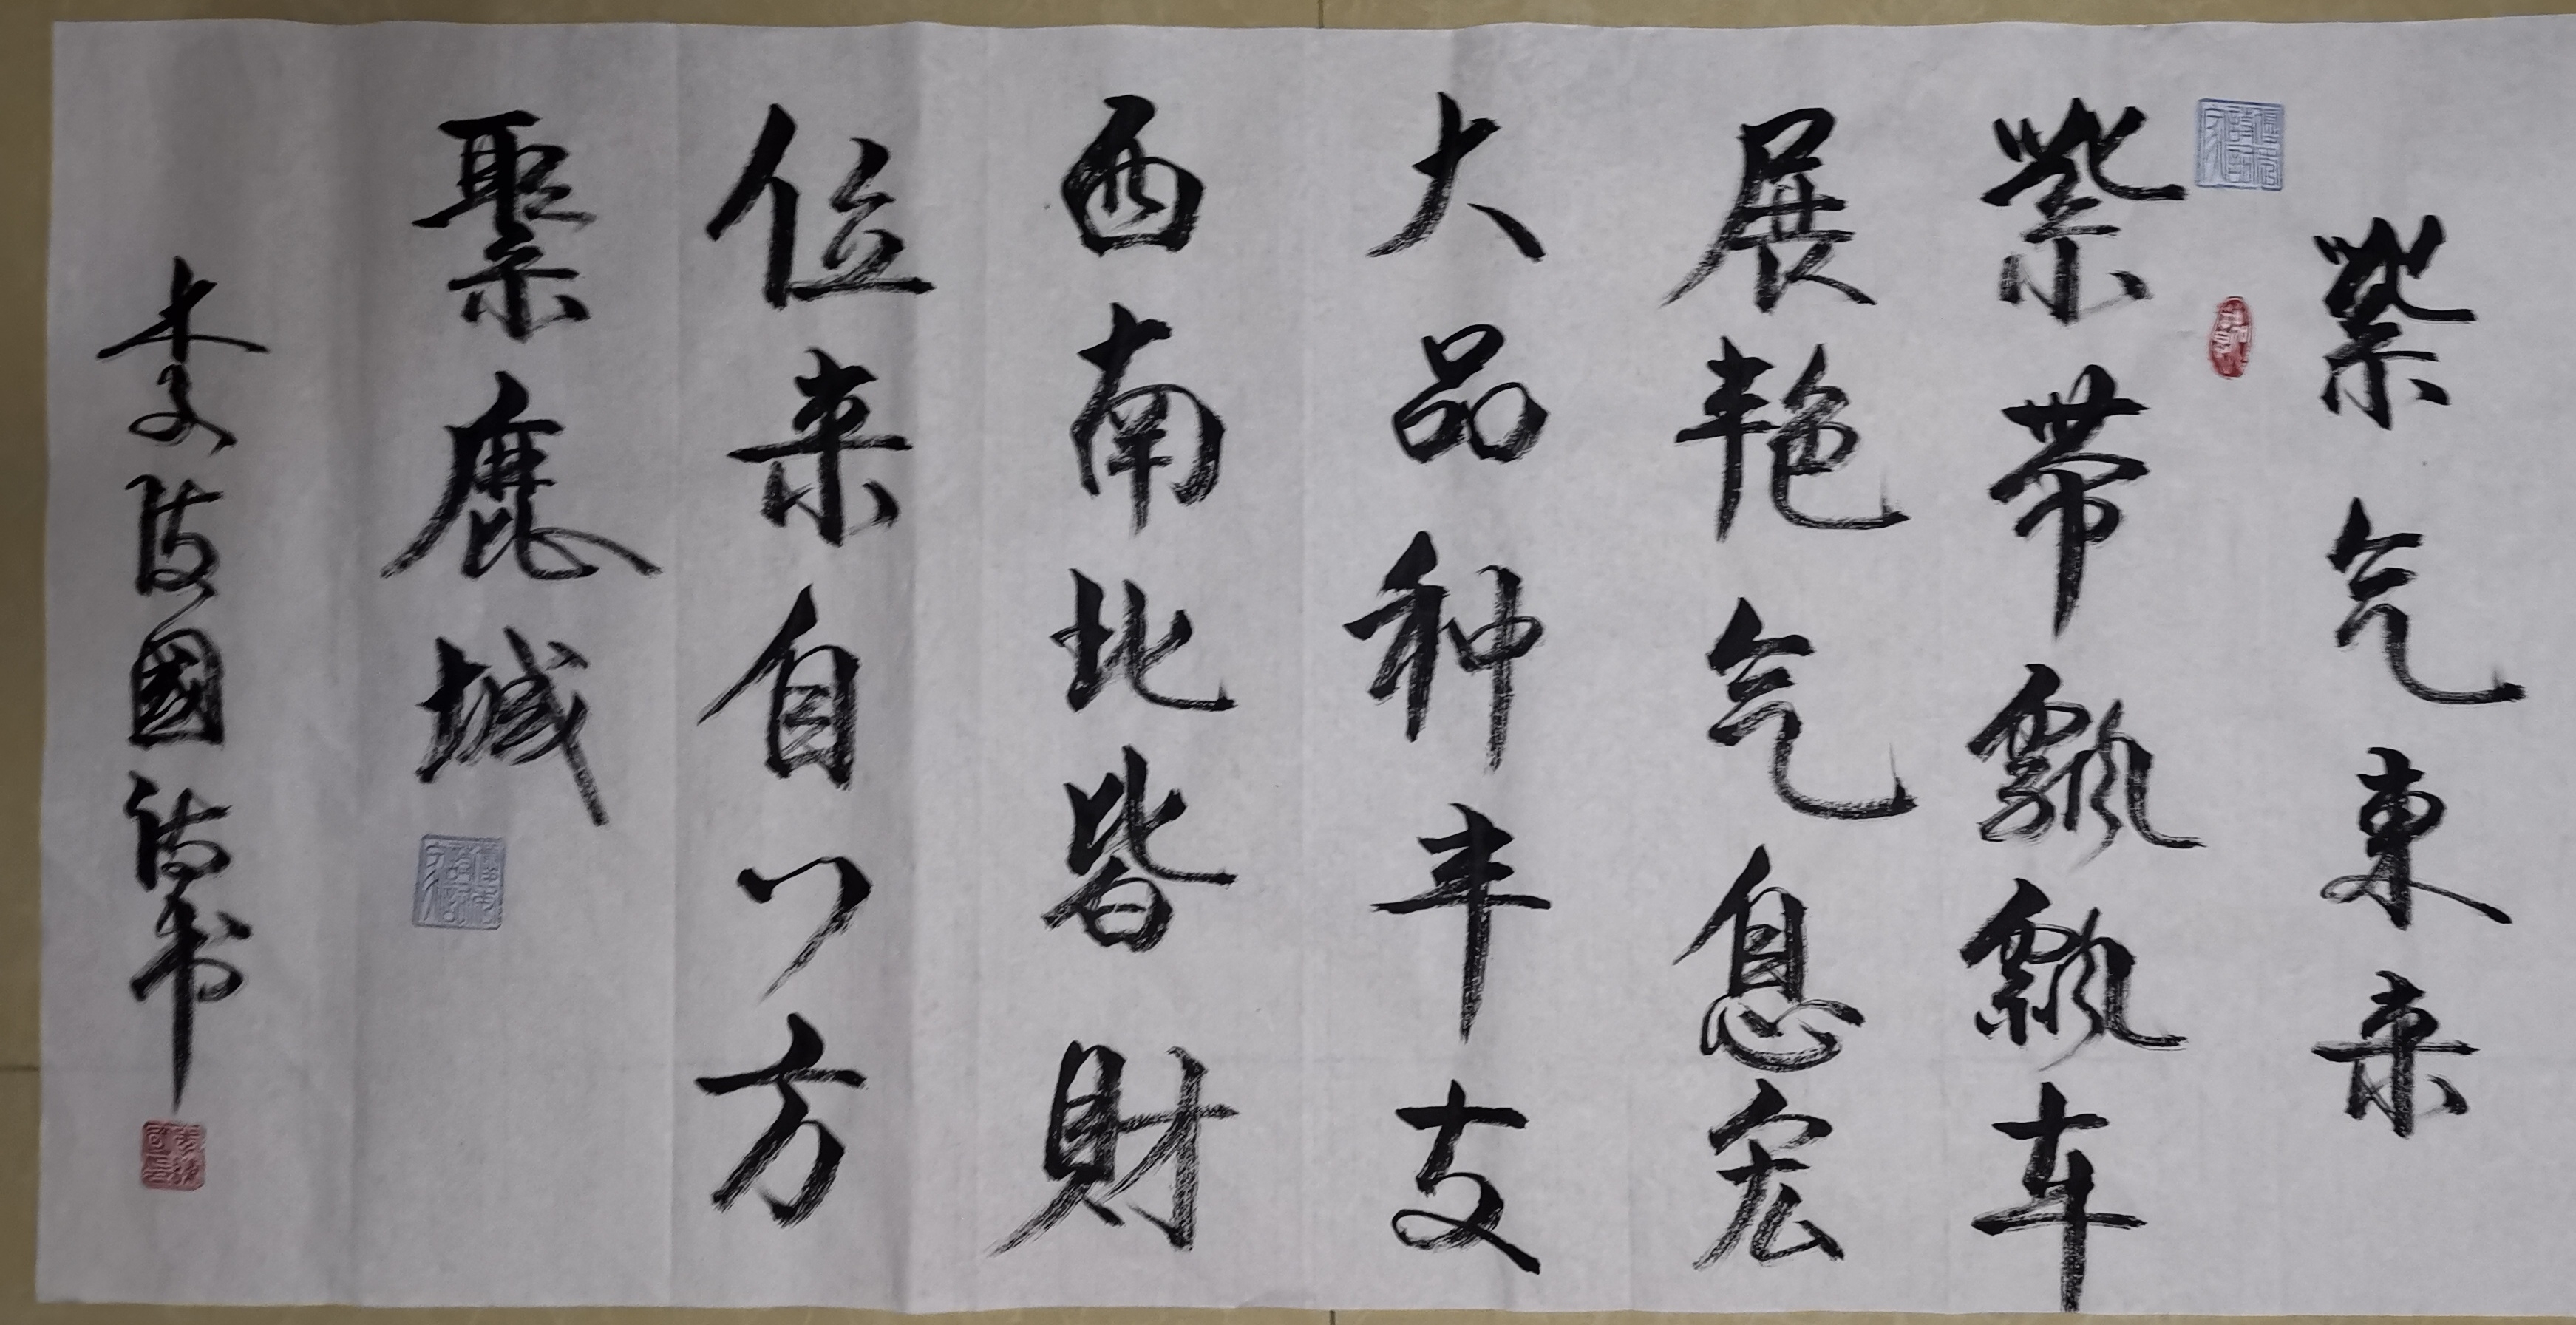 紫气東来
紫带飘飘车
展艳气息宏
大品种丰东
西南北皆財
位来自八方
聚鹿城
李國诗书